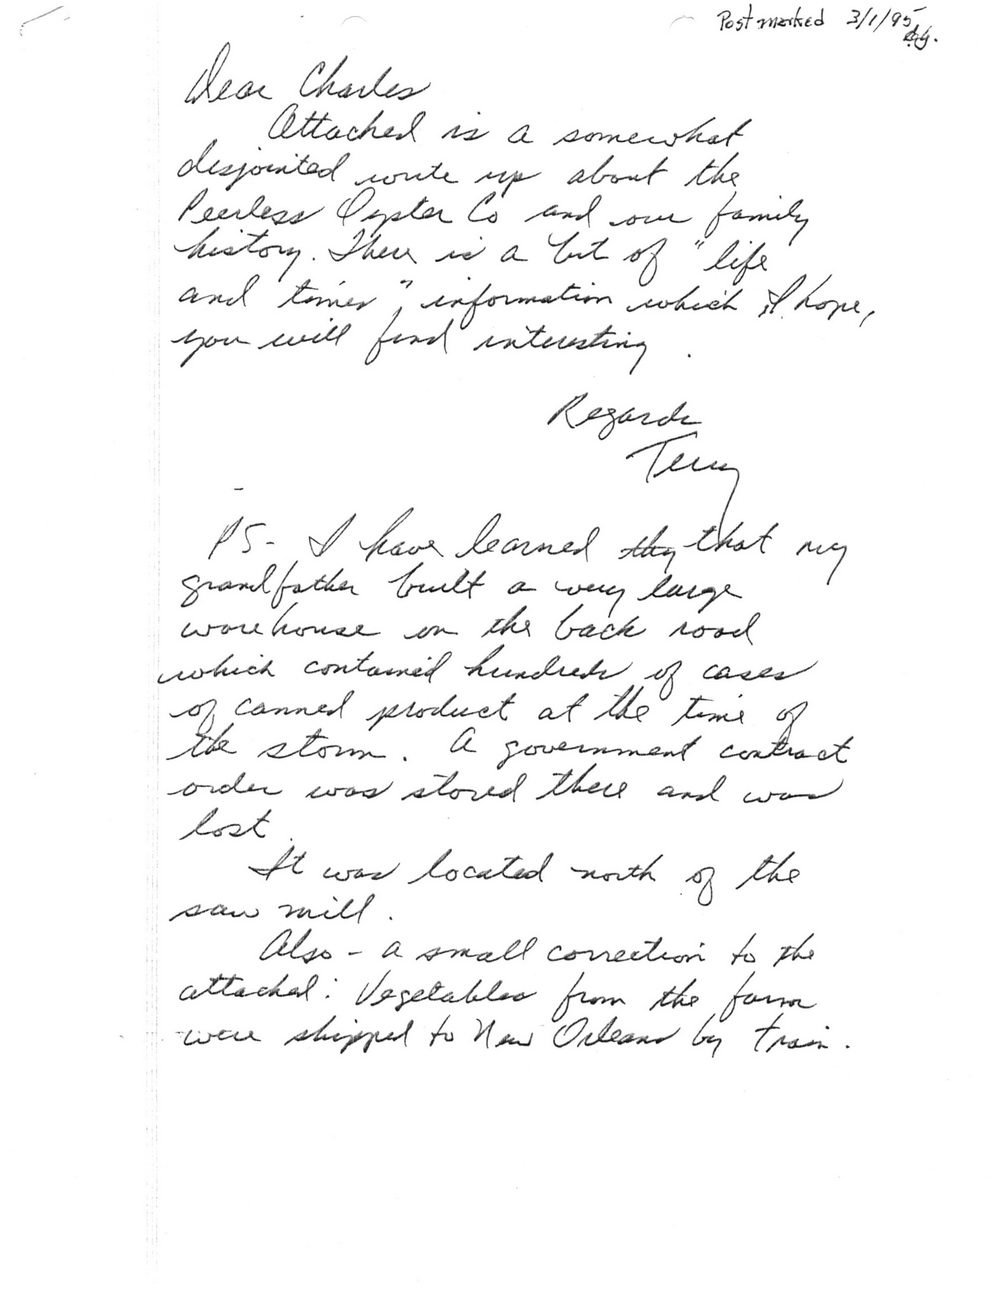 Postmarked 3/1/95
Dear Charles
Attached is a somewhat
disjointed write up about the
Peerless Oyster Co and our family
history. There is a bit of "life
and times", information which I hope,
you will find interesting.
Regards
Terry
PS- I have learned thy that my
grandfather built a very large
warehouse on the back road
which contained hundreds of cases
of canned product at the time of
the storm. A government contract
order was stored there and was
lost.
It was located north of the
saw mill.
Also - a small correction to the
attached: Vegetables from the farm
were shipped to New Orleans by train.